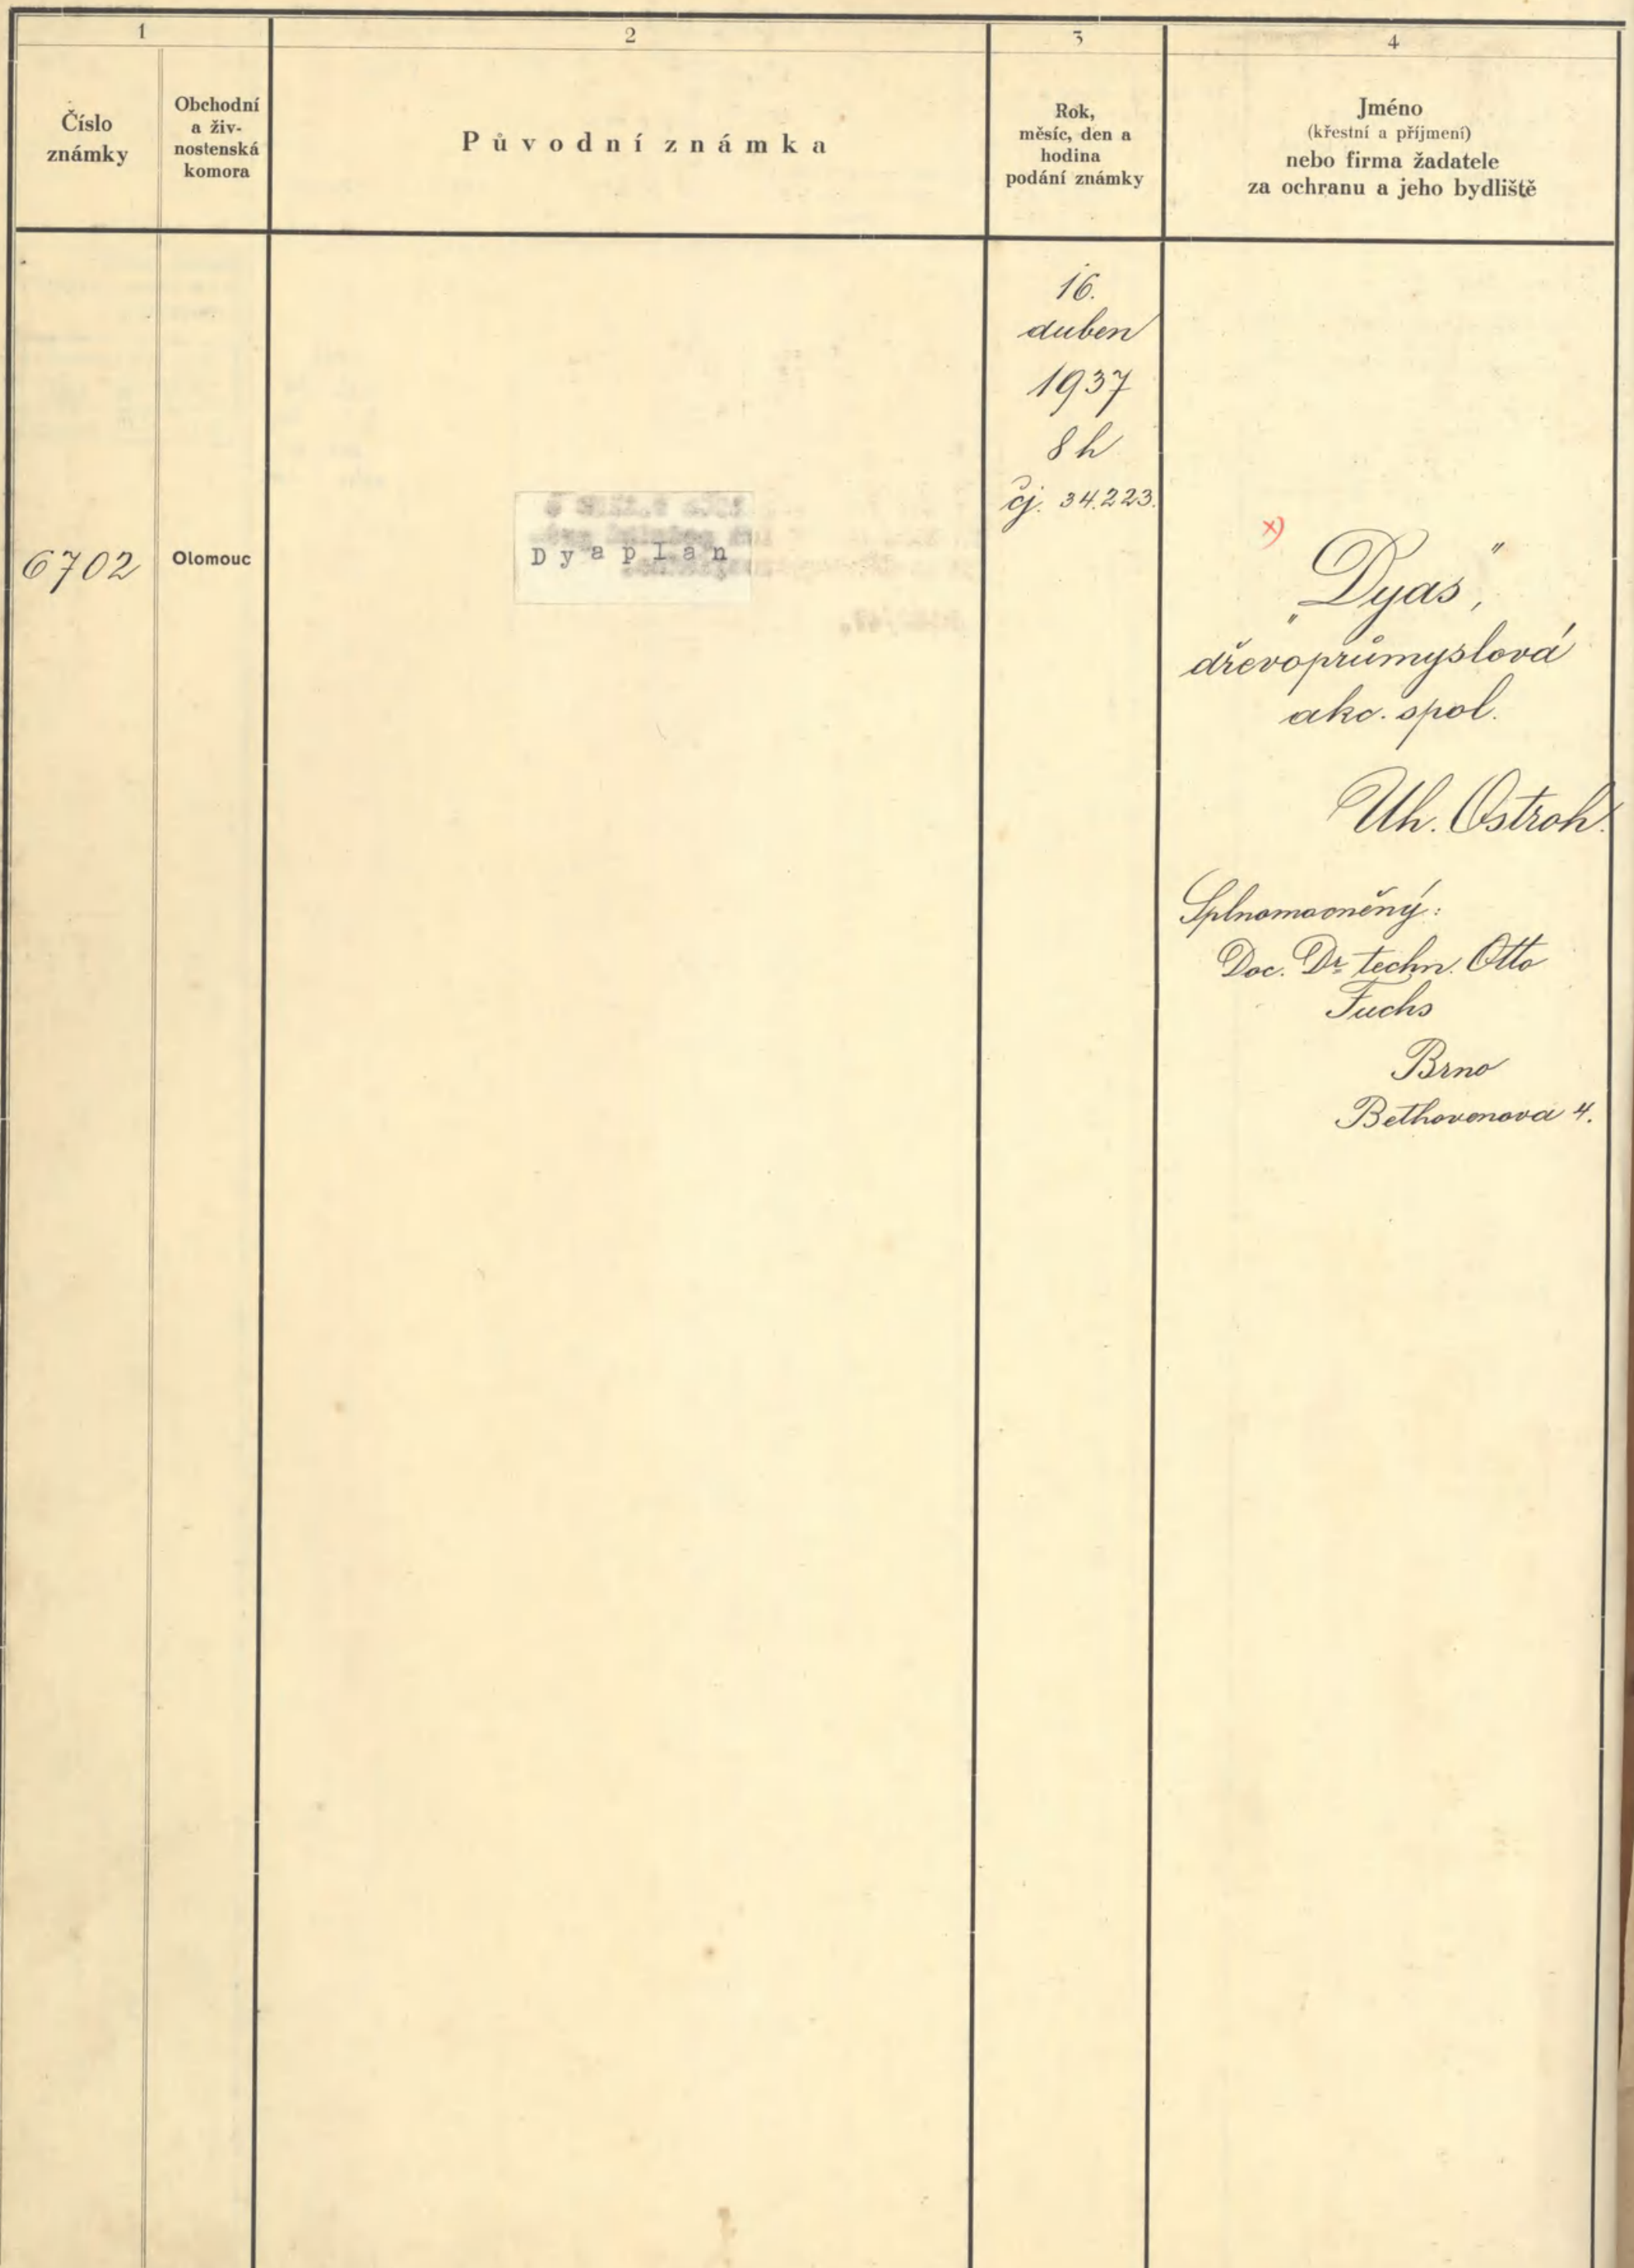 1
2
3
4
Číslo
známky
Obchodní
a živ-
nostenská
komora
Původní známka
Rok,
měsíc, den a
hodina
podání známky
Jméno
(křestní a příjmení)
nebo firma žadatele
za ochranu a jeho bydliště
6702
Olomouc
Dyaplan
16.
duben
1937
8 h
čj. 34.223.
x)
„Dyas“,
dřevoprůmyslová
akc. spol.
Uh. Ostroh.
Splnomocněný:
Doc. Dr. techn. Otto
Fuchs
Brno
Bethovenova 4.